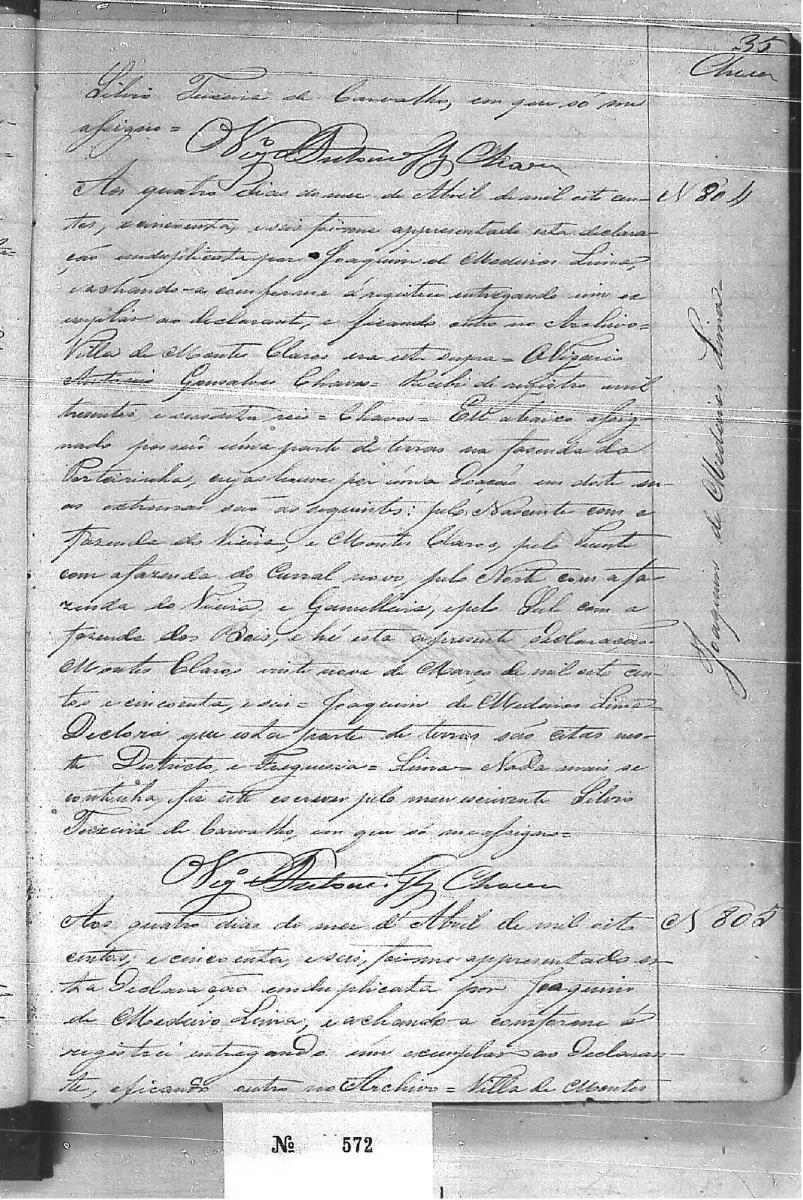 35
Chaves
Silvio Teixeira de Carvalho, em que só me
assigno=
Vigº Antonio Glz Chaves
Aos quatro dias do mez de Abril de mil oito cen- N 804
tos, e cincoenta, e seis foi-me appresentado esta declara-
ção emduplicata por Joaquim de Medeiros Lima,
e achando-a comforme a registrei entregando um ex
emplar ao declarante, e ficando outro no Archivo=
Villa de Montes Claros era ut supra= O Vigario
Antonio Gonsalves Chaves= Recebi de registro mil
trezentos, e secenta reis= Chaves= Eu abaixo assig-
nado possúo uma parte de terras na fazenda da
Porteirinha, cujas houve por uma doação em dote su-
as extremas são as seguintes: pelo Nascente com a
fazenda do Vieira, e Montes Claros, pelo Puente
com a fazenda do Curral novo, pelo Norte com a fa-
zenda do Vieira, e Gamelleira, e pelo Sul com a
fazenda dos Bois, e hé esta a presente declaração
Montes Claros vinte nove de Março de mil oito cen-
tos e cincoenta, e seis= Joaquim de Medeiros Lima=
Declaro, que esta parte de terras são citas nes-
te Districto, e Freguesia= Lima= Nada mais se
continha, fiz este escrever pelo meu escrevente Silvio
Teixeira de Carvalho, em que só me assigno=
Joaquim de Medeiros Lima=
Vigº Antonio Glz Chaves
Aos quatro dias do mez d'Abril de mil oito N 805
centos, e cincoenta, e seis, foi-me appresentado es-
ta Declaração emduplicata por Joaquim
de Medeiro Lima, e achando-a comforme a
registrei entregando um exemplar ao Declaran-
te, e ficando outro no Archivo= Villa de Montes
Nº 572